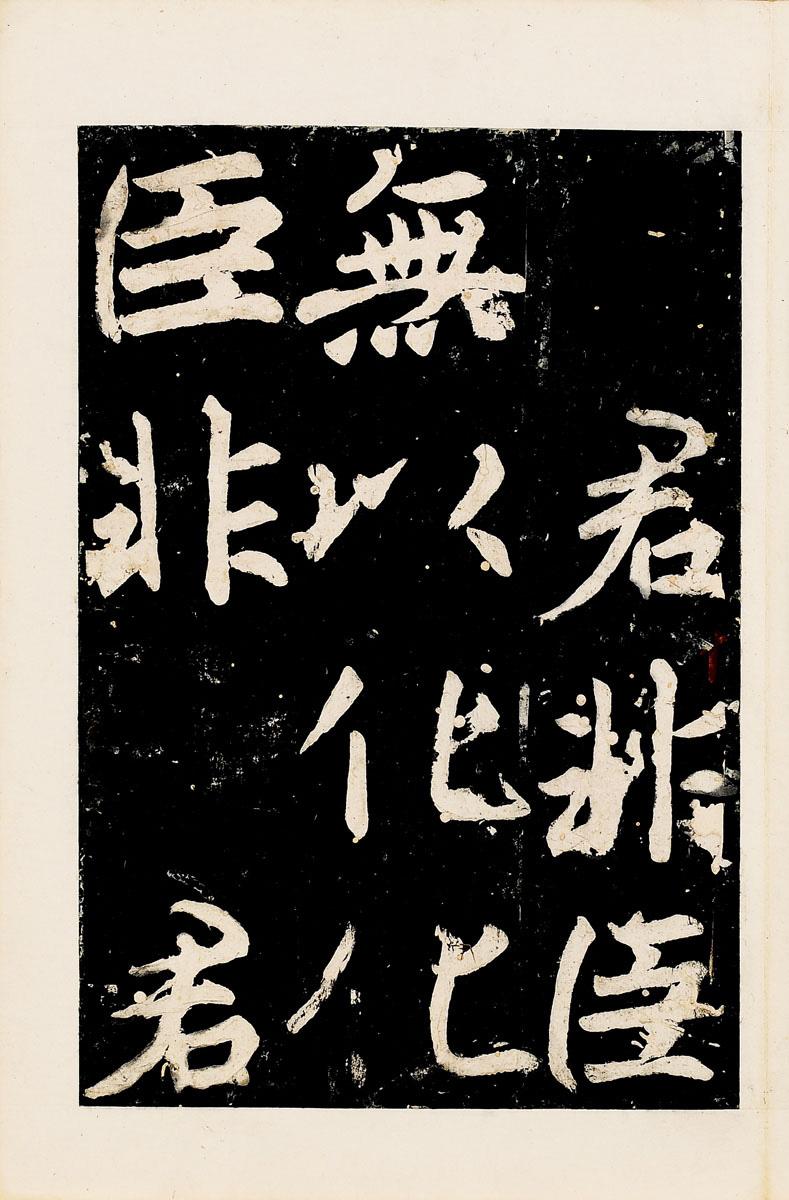 君非臣
無以化化
臣非君